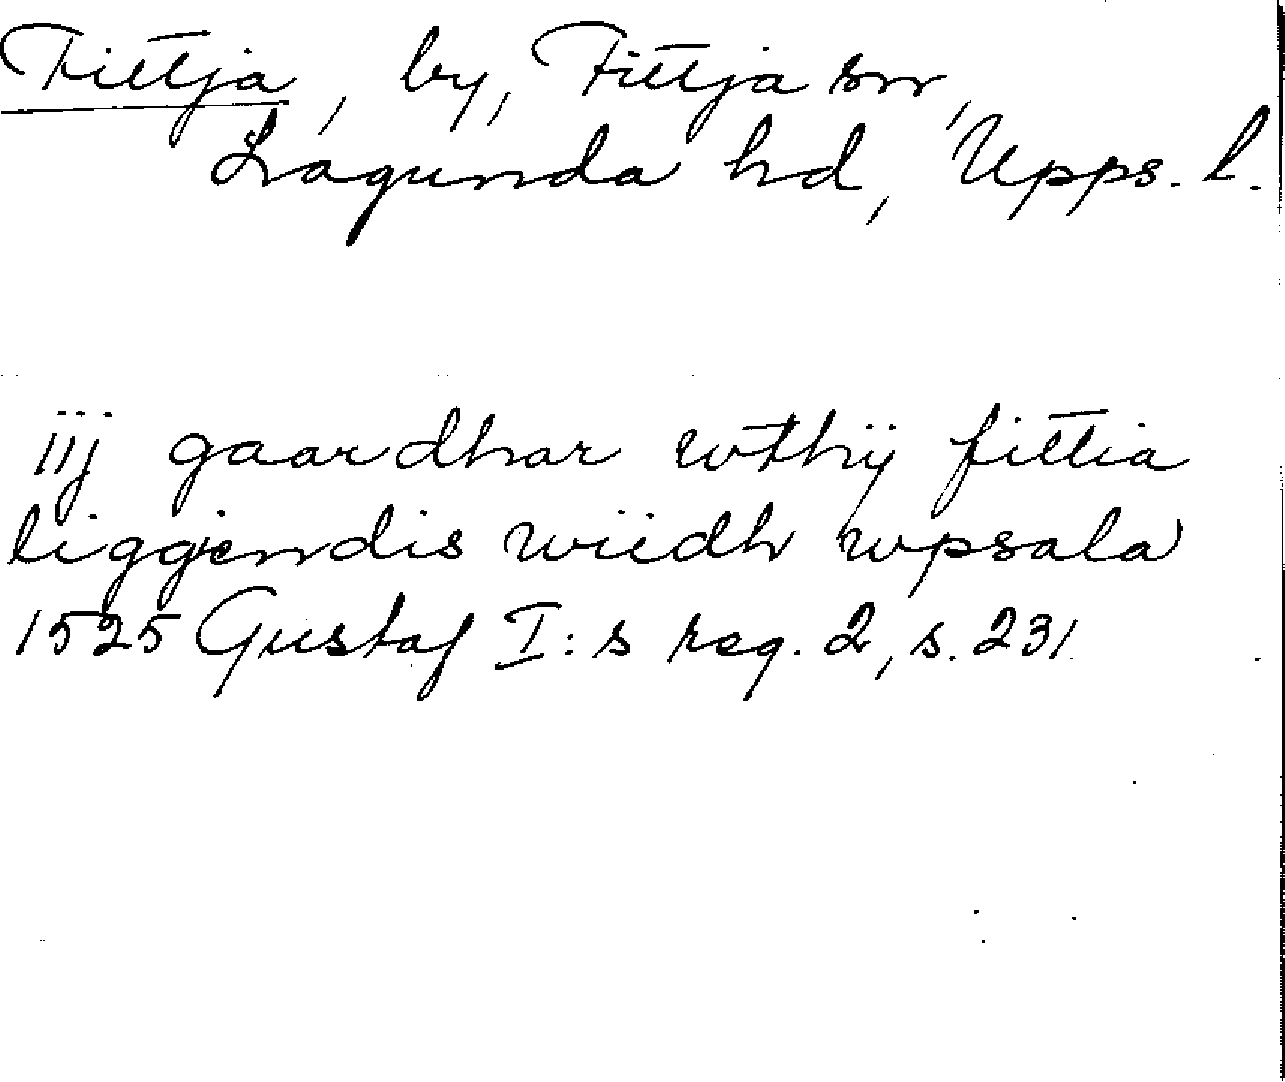 Fittja, by, Fittja sn,
Lagunda hd, Upps. l.
iij gaardhar wthij fittia
liggiendis wiidh wpsala
1525 Gustaf I:s reg. 2, s. 231